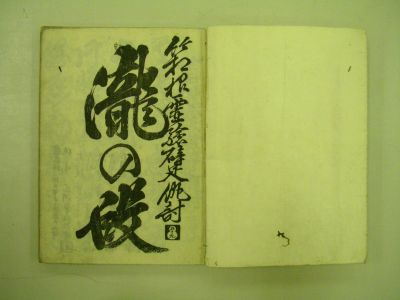 箱根霊験躄仇討
瀧の段